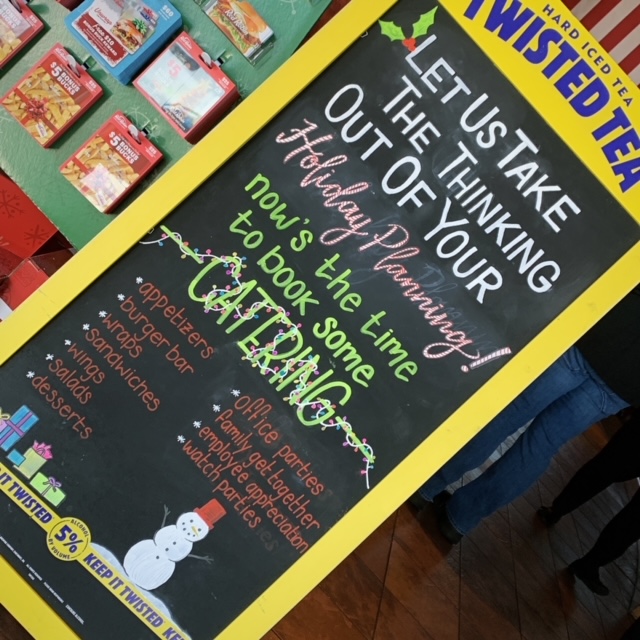 HARD ICED TEA
TWISTED TEA
LET US TAKE
THE THINKING
OUT OF YOUR
Holiday Planning!
now's the time
to book some
CATERING
*appetizers
*burger bar
*wraps
*sandwiches
*wings
*salads
*desserts
*office parties
*family get together
*employee appreciation
*watch parties
IT TWISTED
5%
ALCOHOL
BY VOLUME
KEEP IT TWISTED
KE
$5 BONUS
BUCKS
$5 BONUS
BUCKS